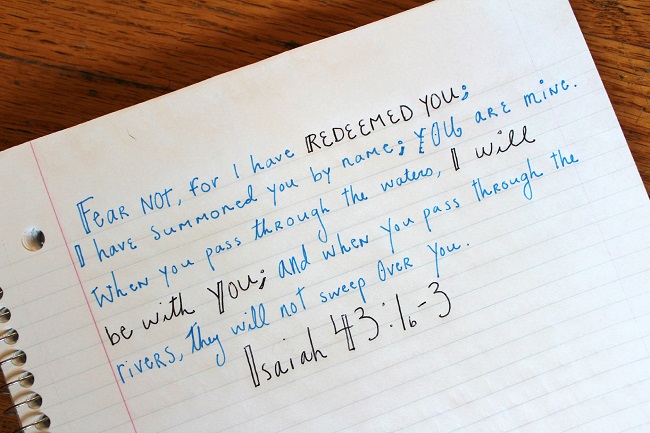 Fear NOT, for I have REDEEMED YOU;
I have summoned you by name; YOU are mine.
When you pass through the waters, I will
be with YOU; and when you pass through the
rivers, they will not sweep over you.
Isaiah 43:1b-3